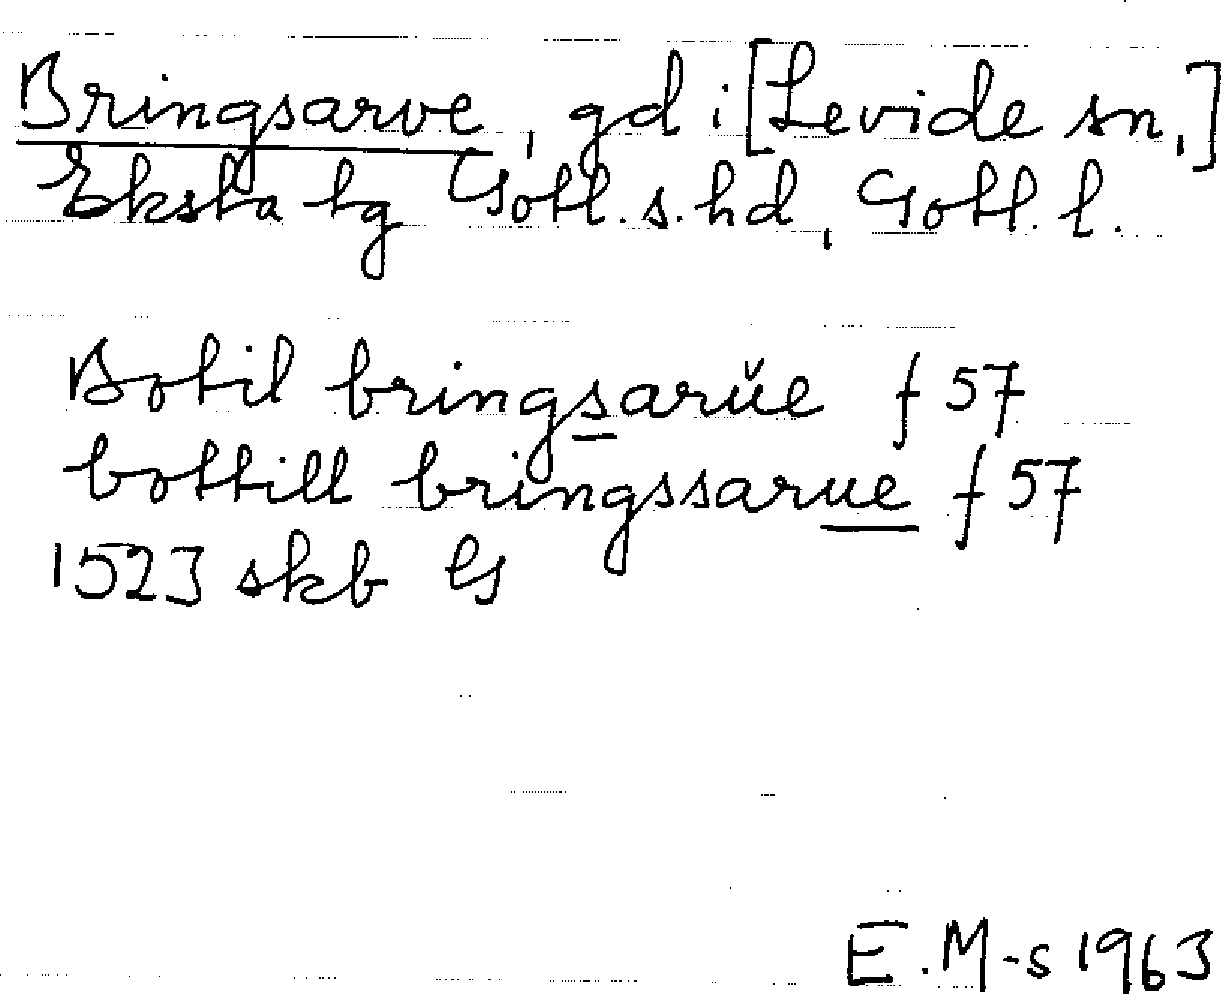 Bringsarve, gd i [Levide sn,]
Eksta tg Gotl. s. hd, Gotl. l.
Botil bringsarŭe f 57
bottill bringssarue f 57
1523 skb G
E.M-s 1963